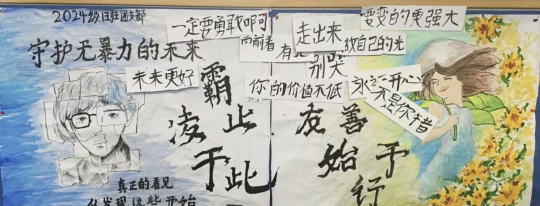 2024级
守护无暴力的未来
未来更好
一定要勇敢啊
向前看
走出来
要变的更强大
放自己的光
别哭
你的价值不低
永远开心
不是你错
霸
凌止
于此
友善
始于
行
真正的看见
从发现这些开始